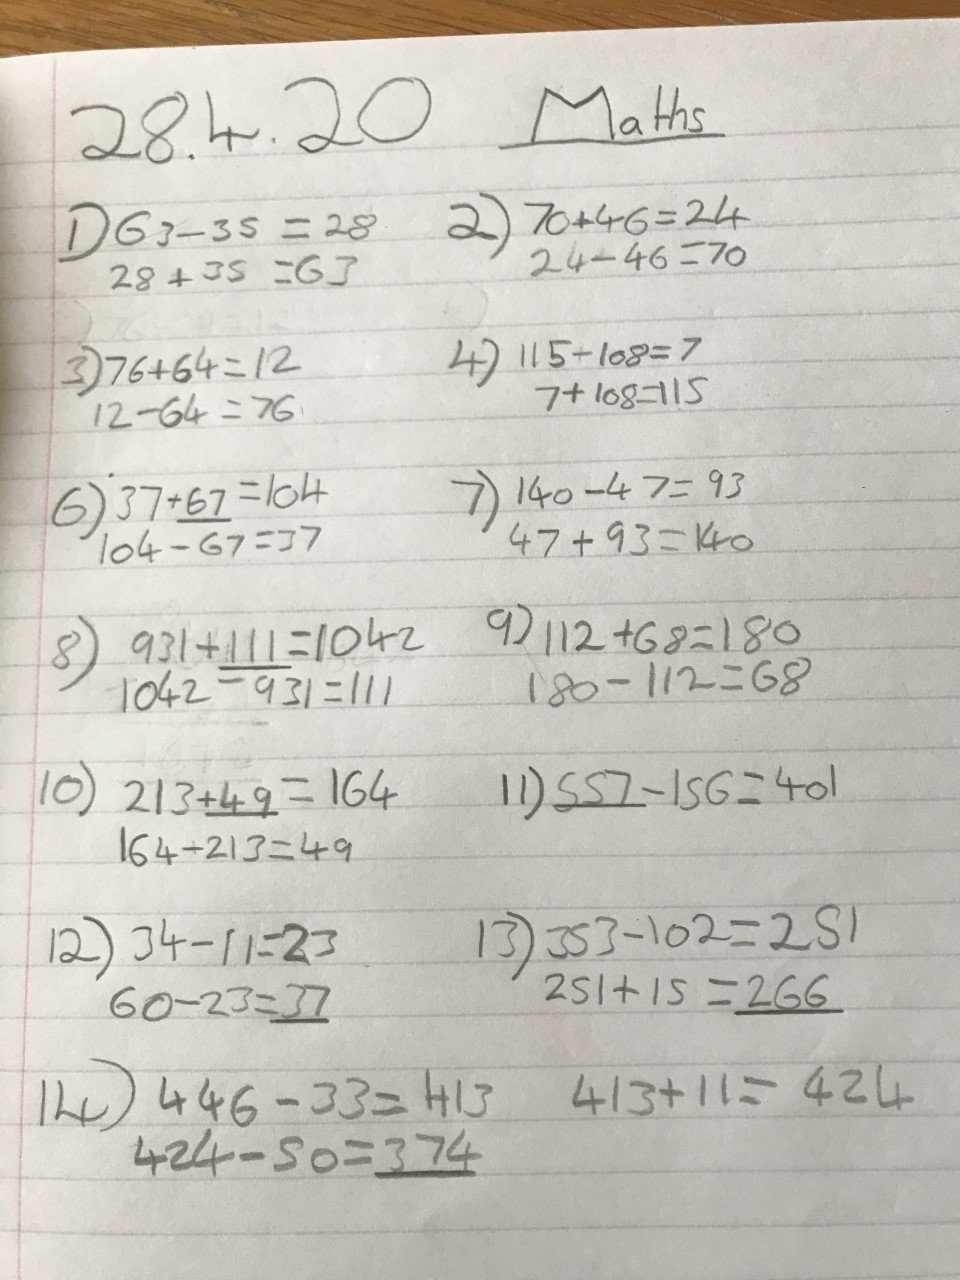 28.4.20 Maths
1) 63-35=28
28+35=63
2) 70+46=24
24-46=70
3) 76+64=12
12-64=76
4) 115-108=7
7+108=115
6) 37+67=104
104-67=37
7) 140-47=93
47+93=140
8) 931+111=1042
1042-931=111
9) 112+68=180
180-112=68
10) 213+49=164
164-213=49
11) 557-156=401
12) 34-11=23
60-23=37
13) 353-102=251
251+15=266
14) 446-33=413 413+11=424
424-50=374